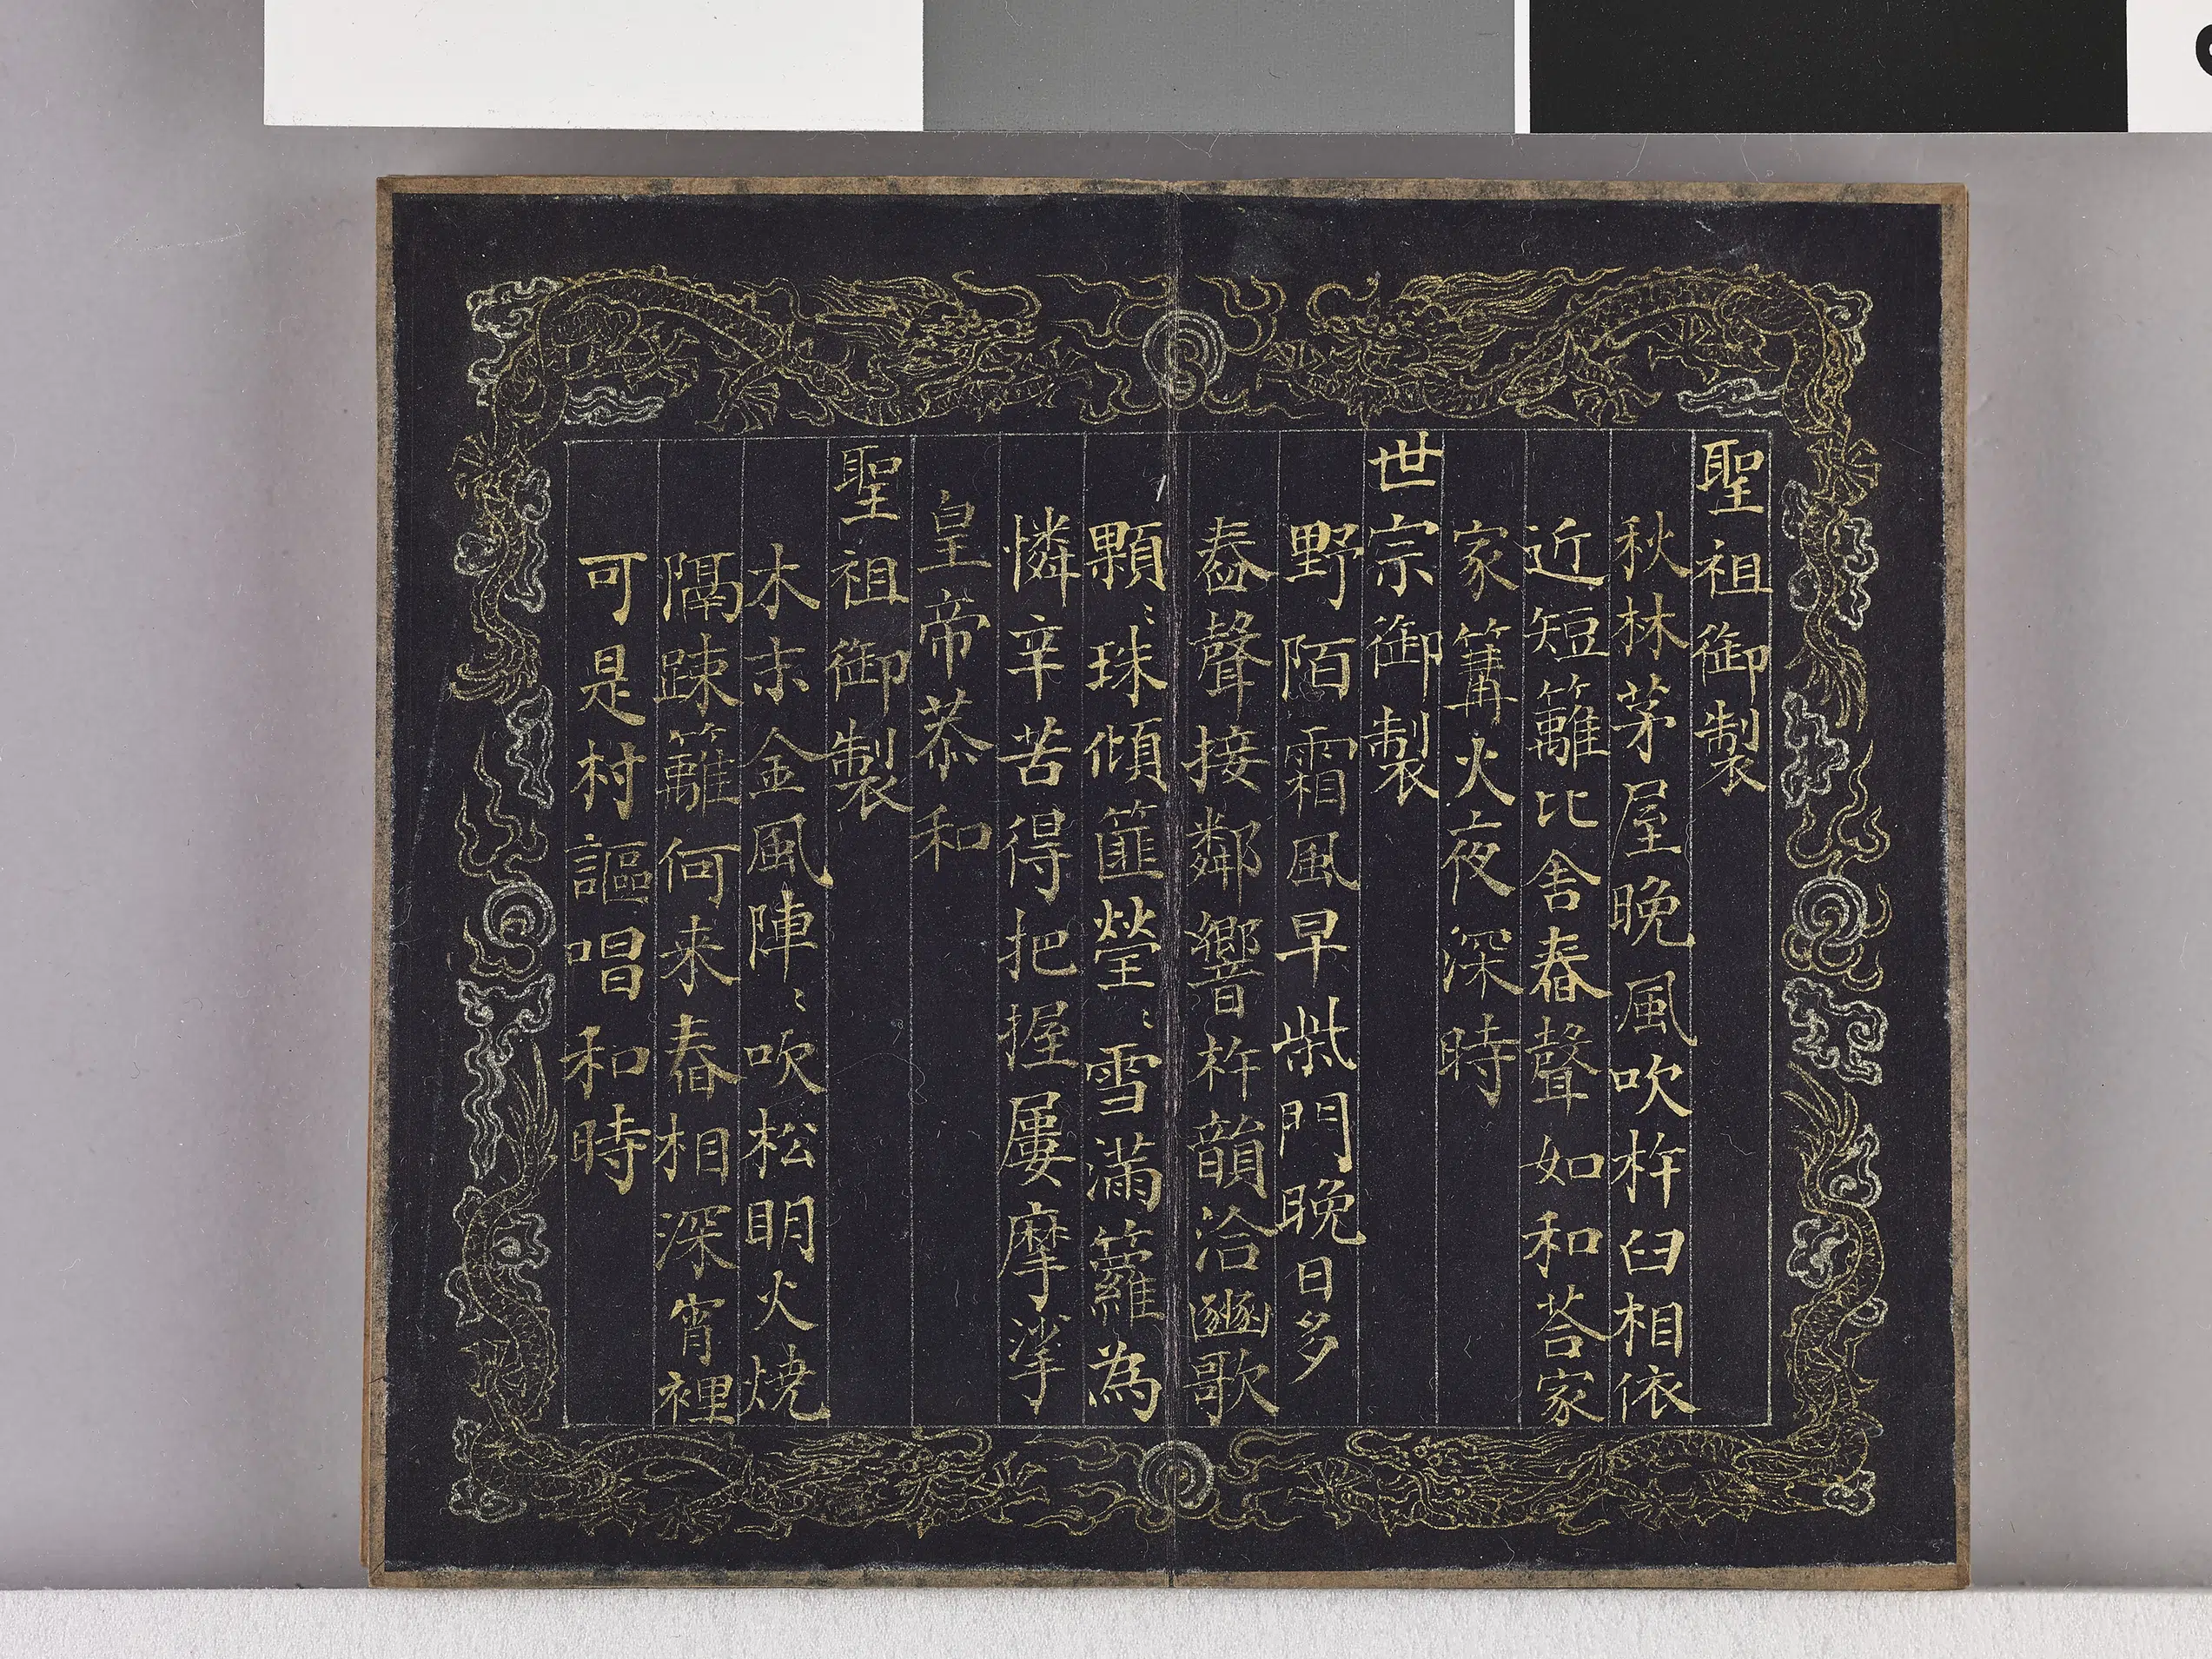 聖祖御製
秋林茅屋晚風吹杵臼相依
近短籬比舍舂聲如和荅家
家篝火夜深時
世宗御製
野陌霜風早柴門晚日多
舂聲接鄰響杵韻洽豳歌
顆〻珠傾筐瑩〻雪滿籮為
憐辛苦得把握屢摩挲
皇帝恭和
聖祖御製
木末金風陣〻吹松明火燒
隔踈籬何来舂相深宵裡
可是村謳唱和時